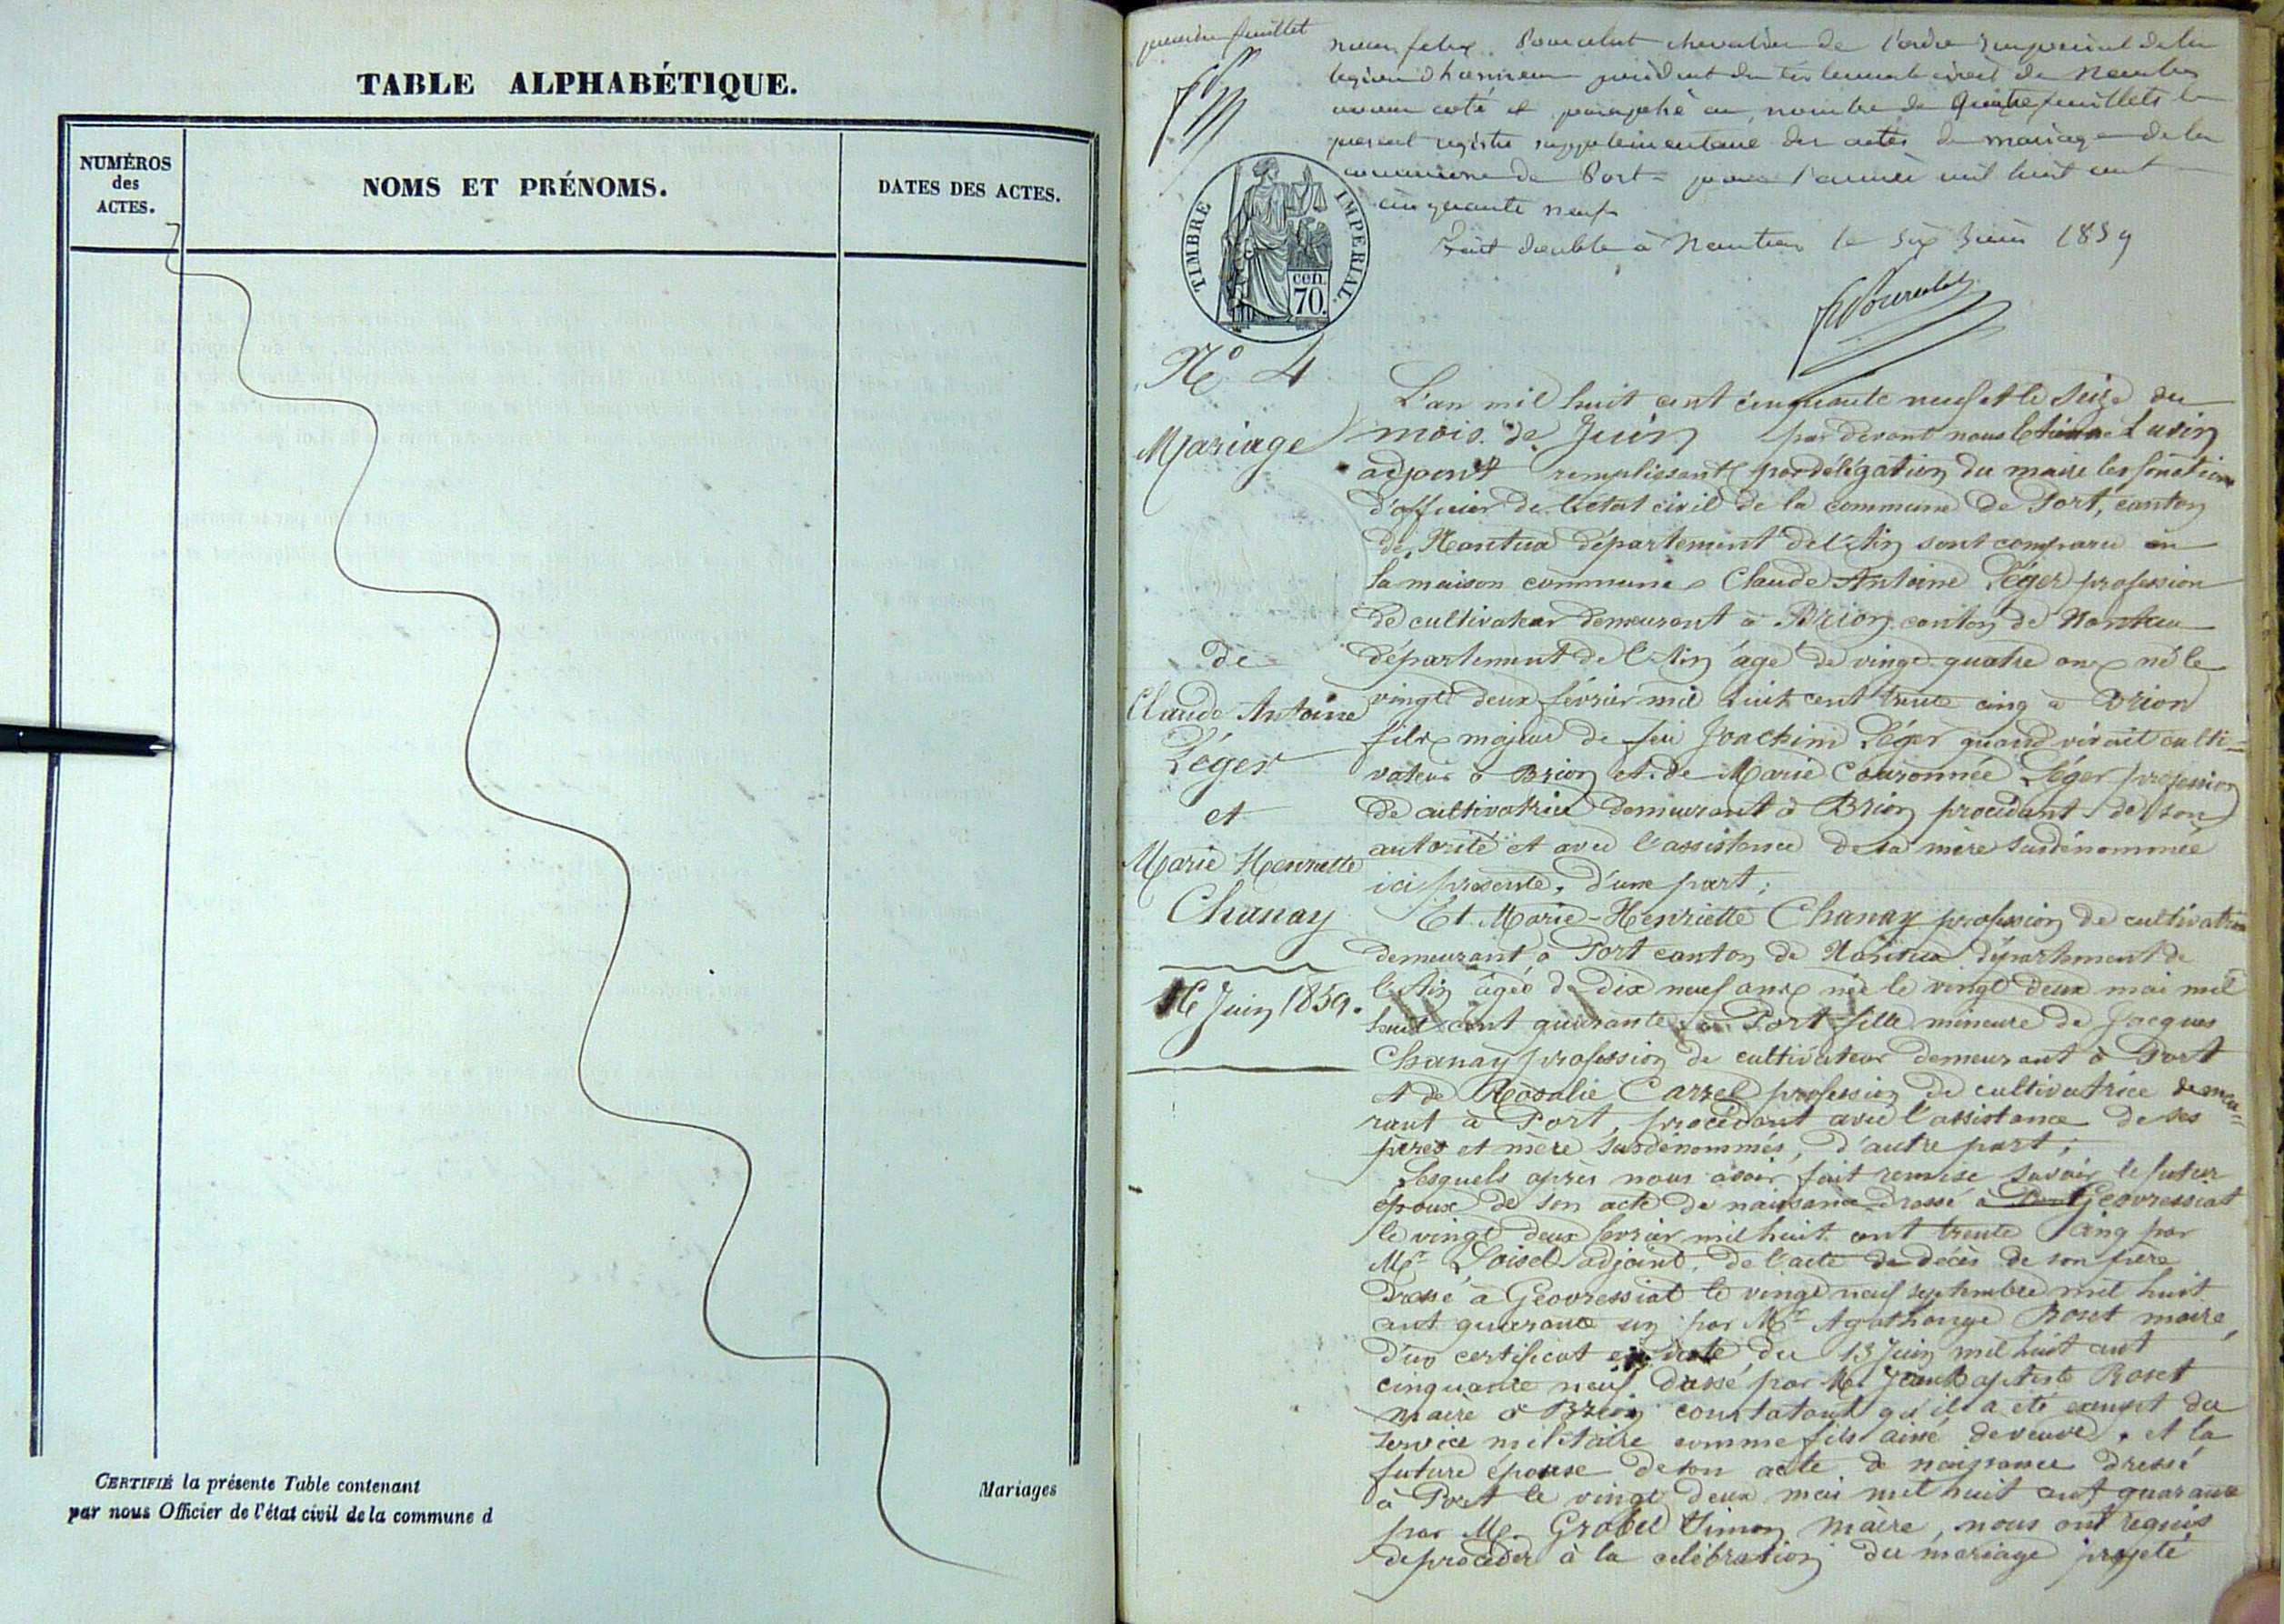 TABLE ALPHABÉTIQUE.
NUMÉROS
des
ACTES.
NOMS ET PRÉNOMS.
DATES DES ACTES.
CERTIFIÉ la présente Table contenant
Mariages
par nous Officier de l'état civil de la commune d
feuillet
nous felix Pourcelot chevalier de l'ordre imperial de la
legion d'honneur président du tribunal civil de Nantua
avons coté et paraphé au nombre de quatre feuillets le
présent registre supplémentaire des actes de mariage de la
commune de Port pour l'année mil huit cent
cinquante neuf
Fait double à Nantua le six Juin 1859
TIMBRE IMPÉRIAL.
cen.
70.
No 4
Mariage
de
Claude Antoine
Léger
et
Marie Henriette
Chanay
16 Juin 1859.
L'an mil huit cent cinquante neuf et le seize du
mois de Juin par devant nous Etienne Luvin
adjoint remplissant par délégation du maire les fonctions
d'officier de l'état civil de la commune de Port, canton
de Nantua département de l'Ain sont comparu en
la maison commune Claude Antoine Léger profession
de cultivateur demeurant à Brion canton de Nantua
département de l'Ain âgé de vingt quatre ans né le
vingt deux février mil huit cent trente cinq à Brion
fils majeur de feu Joachim Léger quand vivait culti-
vateur à Brion et de Marie Couronnée Léger profession
de cultivatrice demeurant à Brion procédant de son
autorité et avec l'assistance de sa mère susdénommée
ici présente, d'une part;
Et Marie-Henriette Chanay profession de cultivatrice
demeurant à Port canton de Nantua département de
l'Ain âgée de dix neuf ans née le vingt deux mai mil
huit cent quarante à Port fille mineure de Jacques
Chanay profession de cultivateur demeurant à Port
et de Rosalie Carrel profession de cultivatrice demeu-
rant à Port, procédant avec l'assistance de ses
pères et mère susdénommés, d'autre part;
Lesquels après nous avoir fait remise savoir le futur
époux de son acte de naissance dressé à Geovressiat
le vingt deux février mil huit cent trente cinq par
Mr Loisel adjoint, de l'acte de décès de son père
dressé à Geovressiat le vingt neuf septembre mil huit
cent quarante un par Mr Agathange Roset maire,
d'un certificat en date du 13 Juin mil huit cent
cinquante neuf dressé par Mr Jean Baptiste Roset
maire à Brion constatant qu'il a été exempt du
service militaire comme fils ainé de veuve, et la
future épouse de son acte de naissance dressé
à Port le vingt deux mai mil huit cent quarante
par Mr Grobel Simon maire, nous ont requis
de procéder à la célébration du mariage projeté